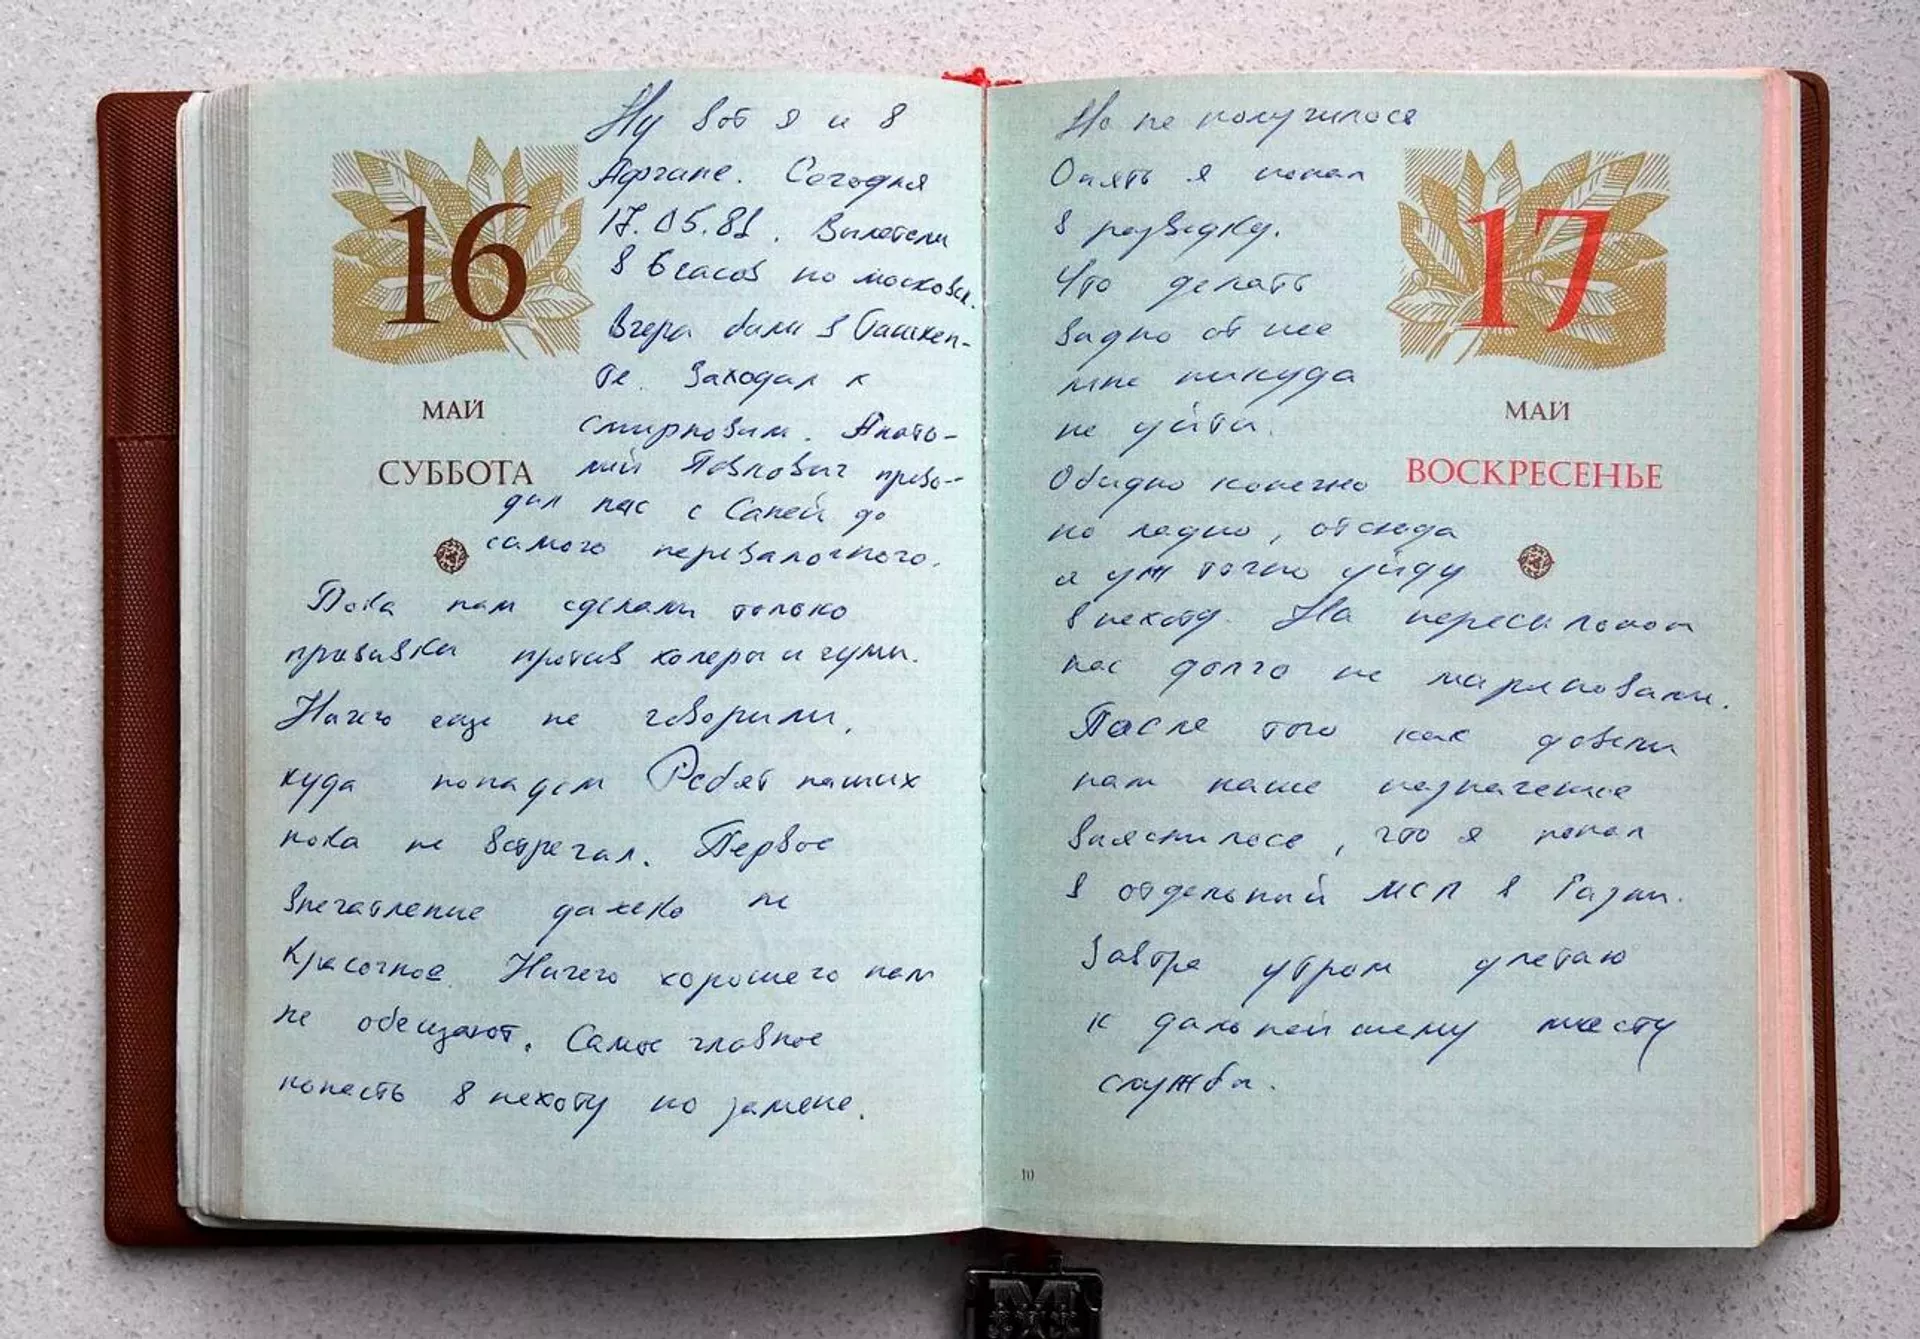 Ну вот я и в
Афгане. Сегодня
17.05.81. Вылетели
в 6 часов по московск.
Вчера были в Ташкен-
те. Заходил к
Смирновым. Анато-
лий Павлович прово-
дил нас с Саней до
самого перевалочного.
16
МАЙ
СУББОТА
Пока нам сделали только
прививки против холеры и чумы.
Ничего еще не говорили,
куда попадем Ребят наших
пока не встречал. Первое
впечатление далеко не
красочное. Ничего хорошего нам
не обещают. Самое главное
попасть в пехоту по замене.
Но не получилось
Опять я попал
в разведку.
Что делать
видно от нее
мне никуда
не уйти.
Обидно конечно
но ладно, отсюда
я уж точно уйду
17
МАЙ
ВОСКРЕСЕНЬЕ
в пехоту. На пересыльном
нас долго не мариновали.
После того как довели
нам наше назначение
выяснилось, что я попал
в отдельный МСП в Газни.
Завтра утром улетаю
к дальнейшему месту
службы.
10